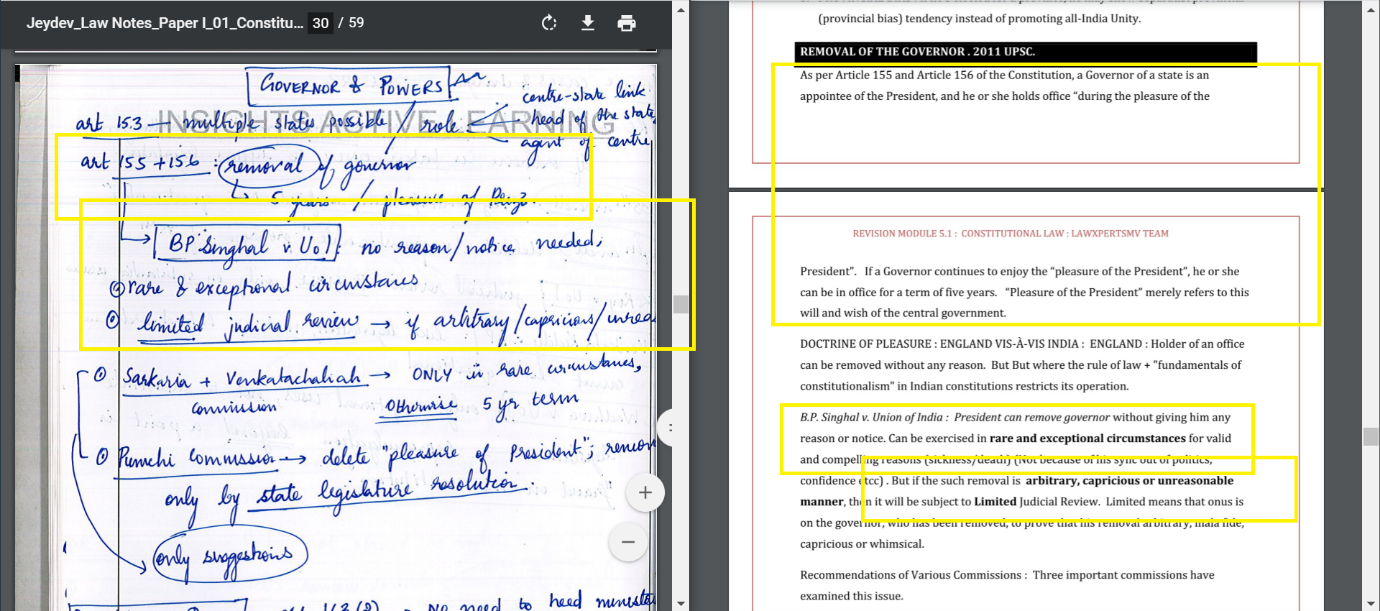 Jeydev_Law Notes_Paper I_01_Constitu... 30 / 59
GOVERNOR & POWERS
INSIGHTS ACTIVE LEARNING
art 153 — multiple state possible / role
centre-state link
head of the state
agent of centre
art 155 + 156 : removal of governor
5 years / pleasure of Prez
BP Singhal v. UoI : no reason/notice needed;
rare & exceptional circumstances
limited judicial review → if arbitrary/capricious/unrea
Sarkaria + Venkatachaliah → ONLY in rare circumstances,
Commission Otherwise 5 yr term
Punchi Commission → delete "pleasure of President"; remov
only by state legislature resolution.
only suggestions
No need to heed ministe
(provincial bias) tendency instead of promoting all-India Unity.
REMOVAL OF THE GOVERNOR . 2011 UPSC.
As per Article 155 and Article 156 of the Constitution, a Governor of a state is an
appointee of the President, and he or she holds office "during the pleasure of the
REVISION MODULE 5.1 : CONSTITUTIONAL LAW : LAWXPERTSMV TEAM
President". If a Governor continues to enjoy the "pleasure of the President", he or she
can be in office for a term of five years. "Pleasure of the President" merely refers to this
will and wish of the central government.
DOCTRINE OF PLEASURE : ENGLAND VIS-À-VIS INDIA : ENGLAND : Holder of an office
can be removed without any reason. But But where the rule of law + "fundamentals of
constitutionalism" in Indian constitutions restricts its operation.
B.P. Singhal v. Union of India : President can remove governor without giving him any
reason or notice. Can be exercised in rare and exceptional circumstances for valid
and compelling reasons (sickness/death) (Not because of his sync out of politics,
confidence etcc) . But if the such removal is arbitrary, capricious or unreasonable
manner, then it will be subject to Limited Judicial Review. Limited means that onus is
on the governor, who has been removed, to prove that his removal arbitrary, mala fide,
capricious or whimsical.
Recommendations of Various Commissions : Three important commissions have
examined this issue.